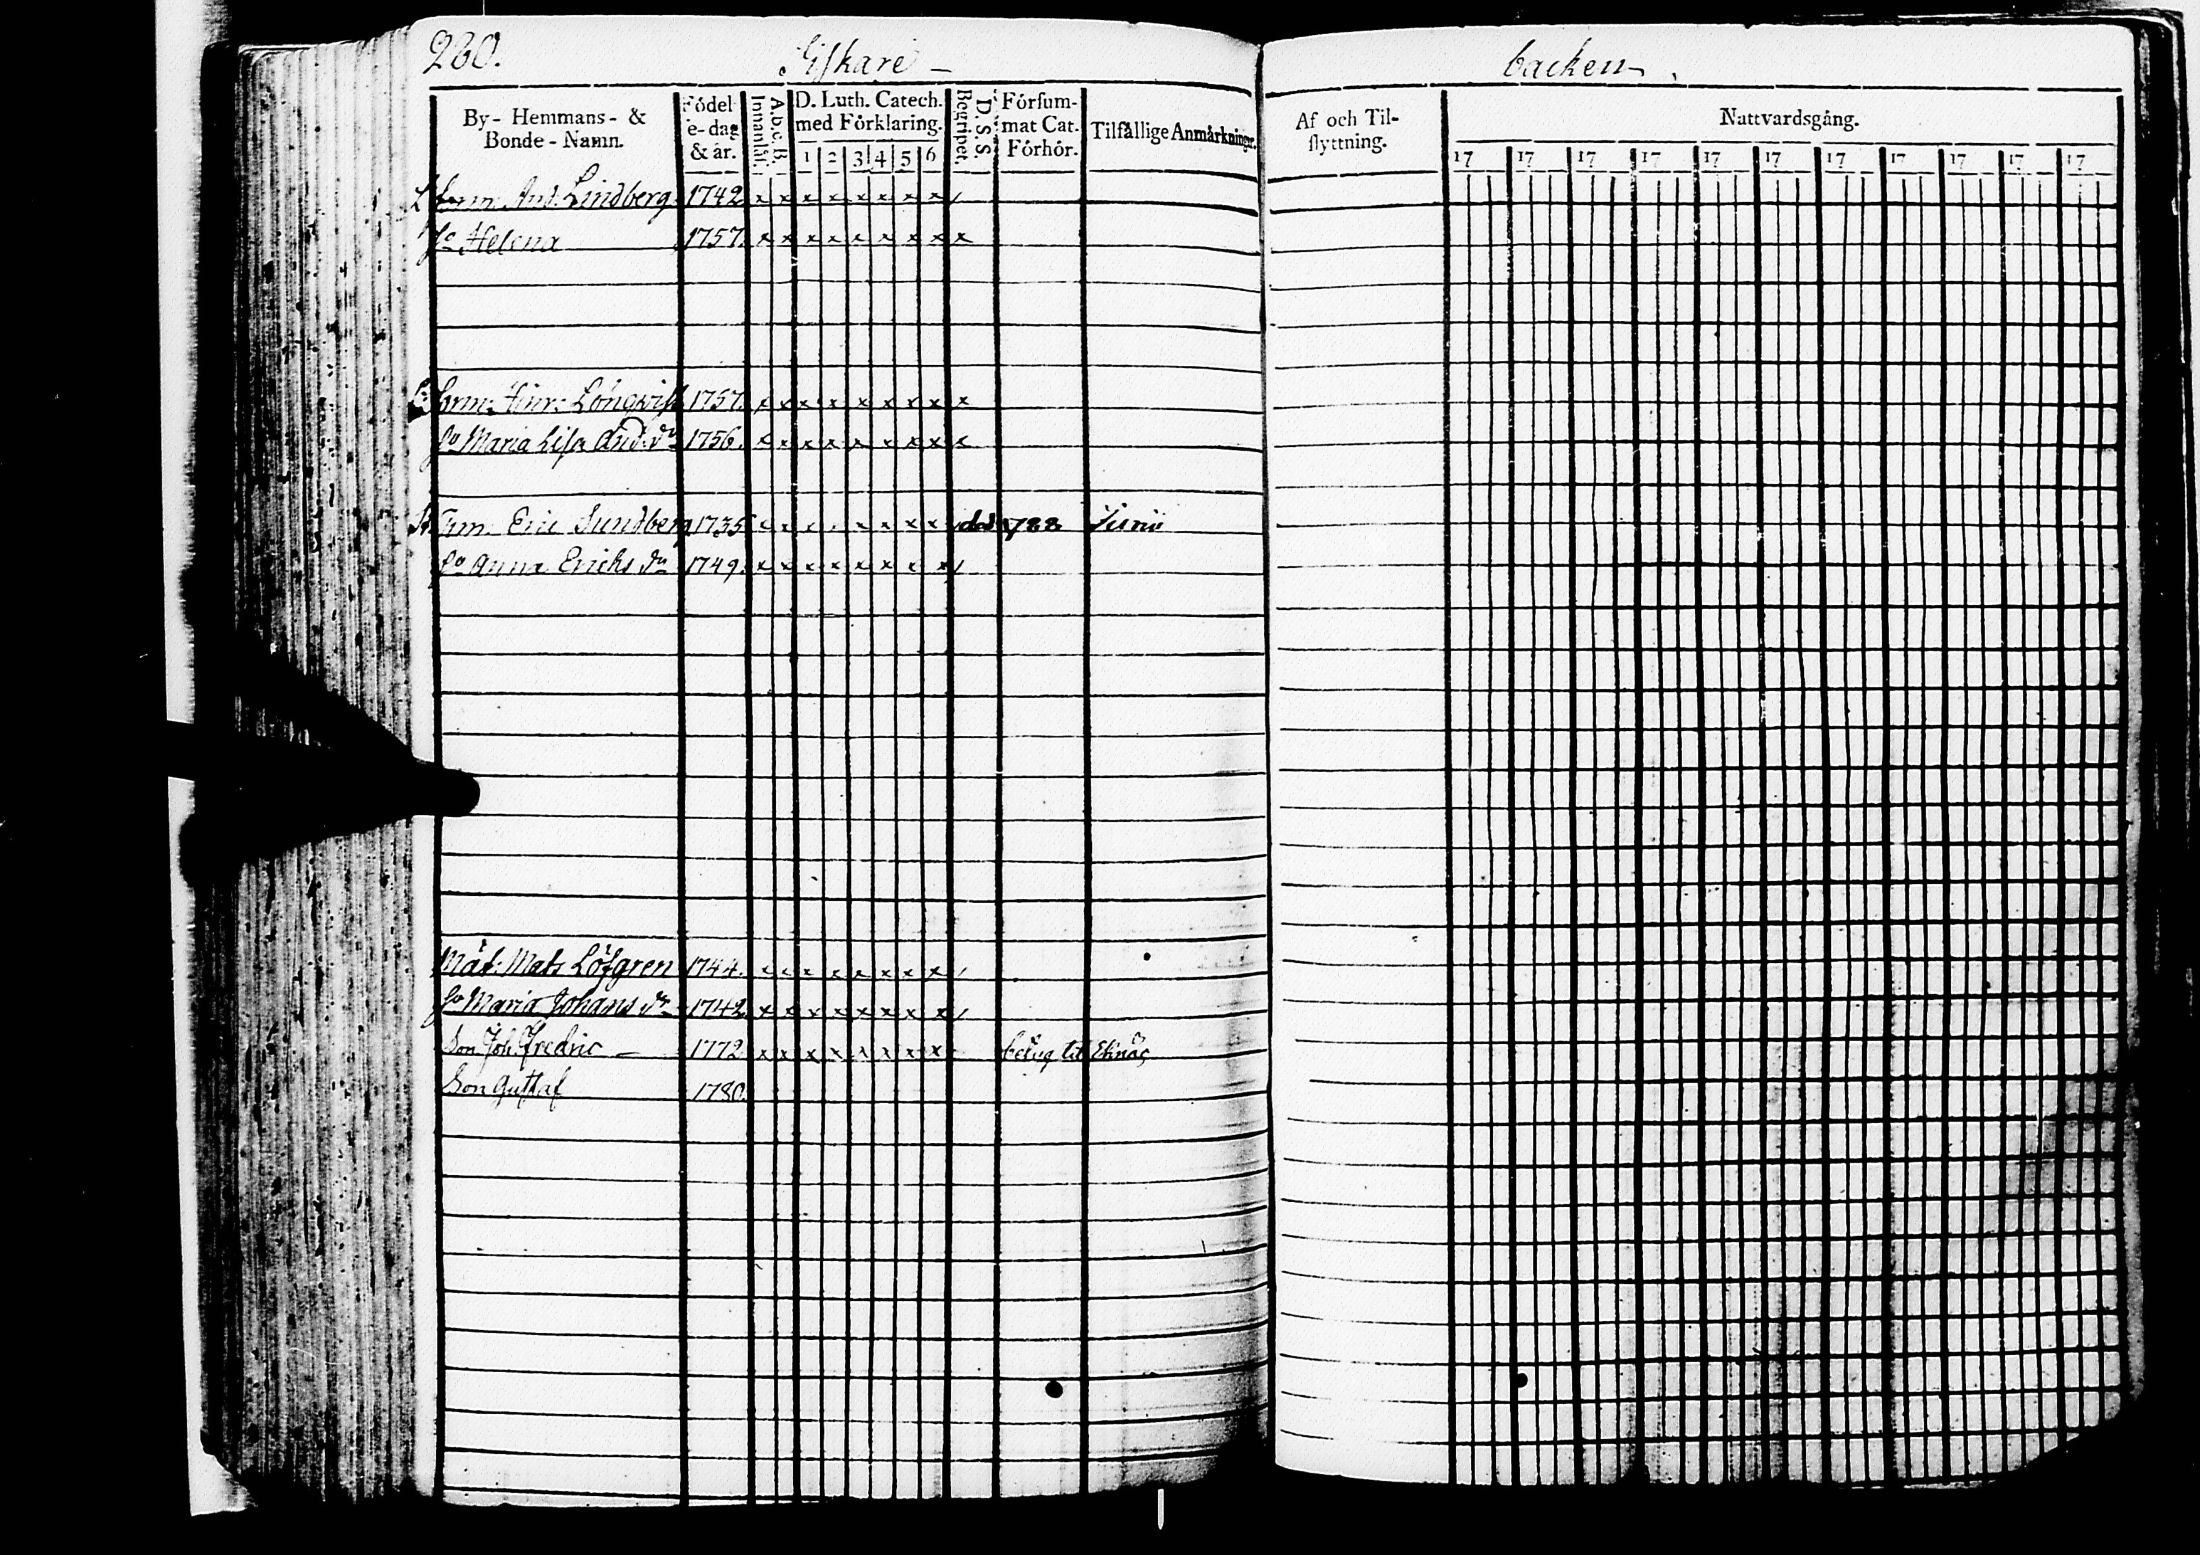 260.
Fiskare -
By- Hemmans- & Bonde-Namn.
Födel e-dag & år.
A.b.c.B. Innanläs.
D. Luth. Catech. med Förklaring.
1 2 3 4 5 6
D.S.S. Begripet.
Förſum- mat Cat. Förhör.
Tilfällige Anmärkningar.
And. Lindberg 1742 x x x x x x x x
Ho Helena 1757. x x x x x x x x x
Hinr: Lönqvist 1757. x x x x x x x x x
Ho Maria Lisa And. dr 1756. x x x x x x x x x
Eric Sundberg 1735 x x x x x x x x död 1788
Ho Anna Erichs dr 1749. x x x x x x x x
Mats Löfgren 1744. x x x x x x x x
Ho Maria Johans dr 1742 x x x x x x x x
Son Joh. Fredric - 1772 x x x x x x x x betyg til Eknäs
Son Gustaf 1780.
backen -.
Af och Til- flyttning.
Nattvardsgång.
17 17 17 17 17 17 17 17 17 17 17